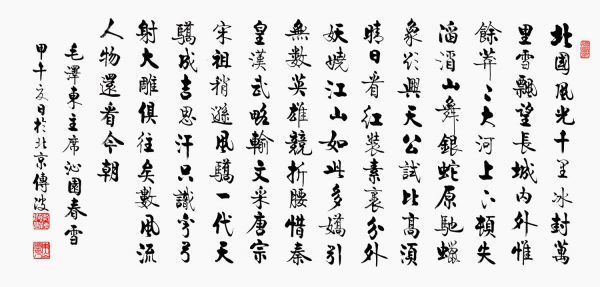 北國風光千里冰封萬
里雪飄望長城内外惟
餘莽々大河上下頓失
滔滔山舞銀蛇原馳蠟
象欲與天公試比高須
晴日看红裝素裹分外
妖嬈江山如此多嬌引
無數英雄競折腰惜秦
皇漢武略輸文采唐宗
宋祖稍遜風騷一代天
驕成吉思汗只識彎弓
射大雕俱往矣數風流
人物還看今朝
毛澤東主席沁園春雪
甲午夏日於北京傳波